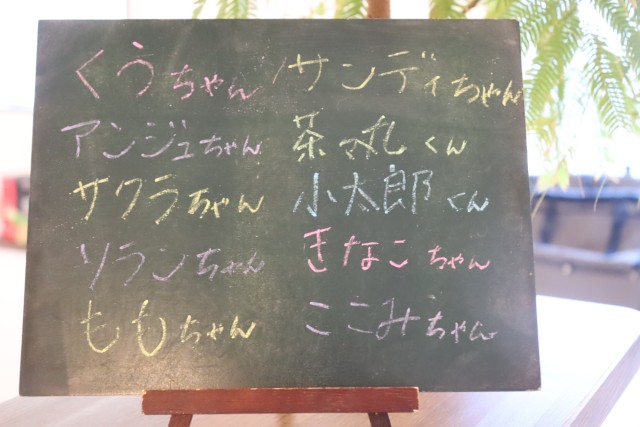 くうちゃん サンディちゃん
アンジュちゃん 茶々丸くん
サクラちゃん 小太郎くん
ソランちゃん きなこちゃん
ももちゃん ここみちゃん